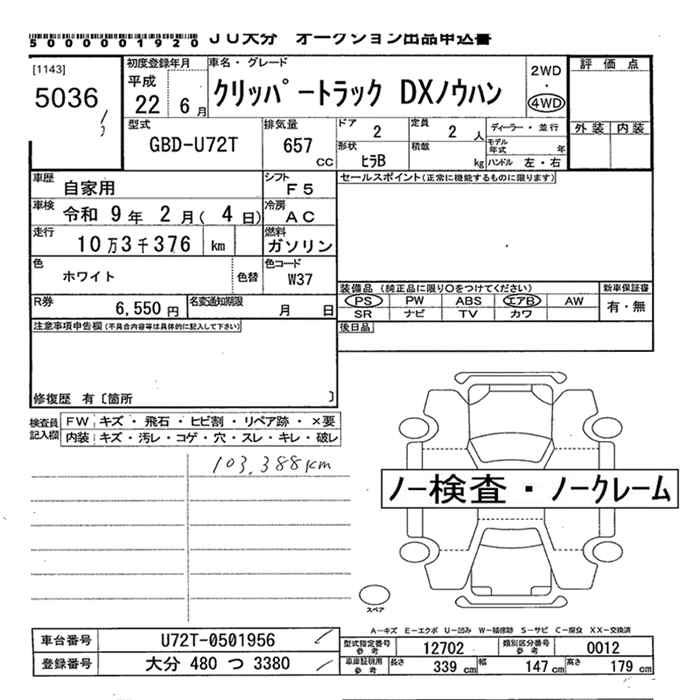 5000001920 JU大分 オークション出品申込書
[1143]
5036
初度登録年月
平成
22 6月
車名・グレード
クリッパートラック DXノウハン
2WD
4WD
評価点
外装 内装
型式
GBD-U72T
排気量
657
CC
ドア
2
定員
2 人
ディーラー・並行
モデル年式 年
形状
ヒラB
積載
kg
ハンドル 左・右
車歴
自家用
シフト
F5
セールスポイント(正常に機能するものに限ります)
車検
令和 9年 2月( 4日)
冷房
AC
走行
10万3千376 km
燃料
ガソリン
色
ホワイト
色替
色コード
W37
装備品 (純正品に限り○をつけてください)
新車保証書
PS PW ABS エアB AW
有・無
SR ナビ TV カワ
R券
6,550円
名変通知期限
月 日
後日品
注意事項申告欄(不具合内容等は具体的に記入して下さい)
修復歴 有〔箇所 〕
検査員記入欄
FW キズ・飛石・ヒビ割・リペア跡・×要
内装 キズ・汚レ・コゲ・穴・スレ・キレ・破レ
103,388km
ノー検査・ノークレーム
スペア
A−キズ E−エクボ U−凹み W−補修跡 S−サビ C−腐食 XX−交換済
車台番号 U72T-0501956
登録番号 大分 480 つ 3380
型式指定番号 参考 12702 類別区分番号 参考 0012
車庫証明用 参考 長さ 339cm 幅 147cm 高さ 179cm